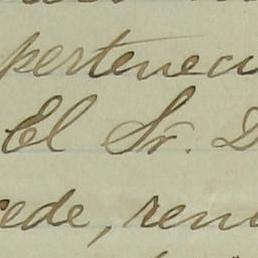 perteneci
El Sr. D
cede, renu